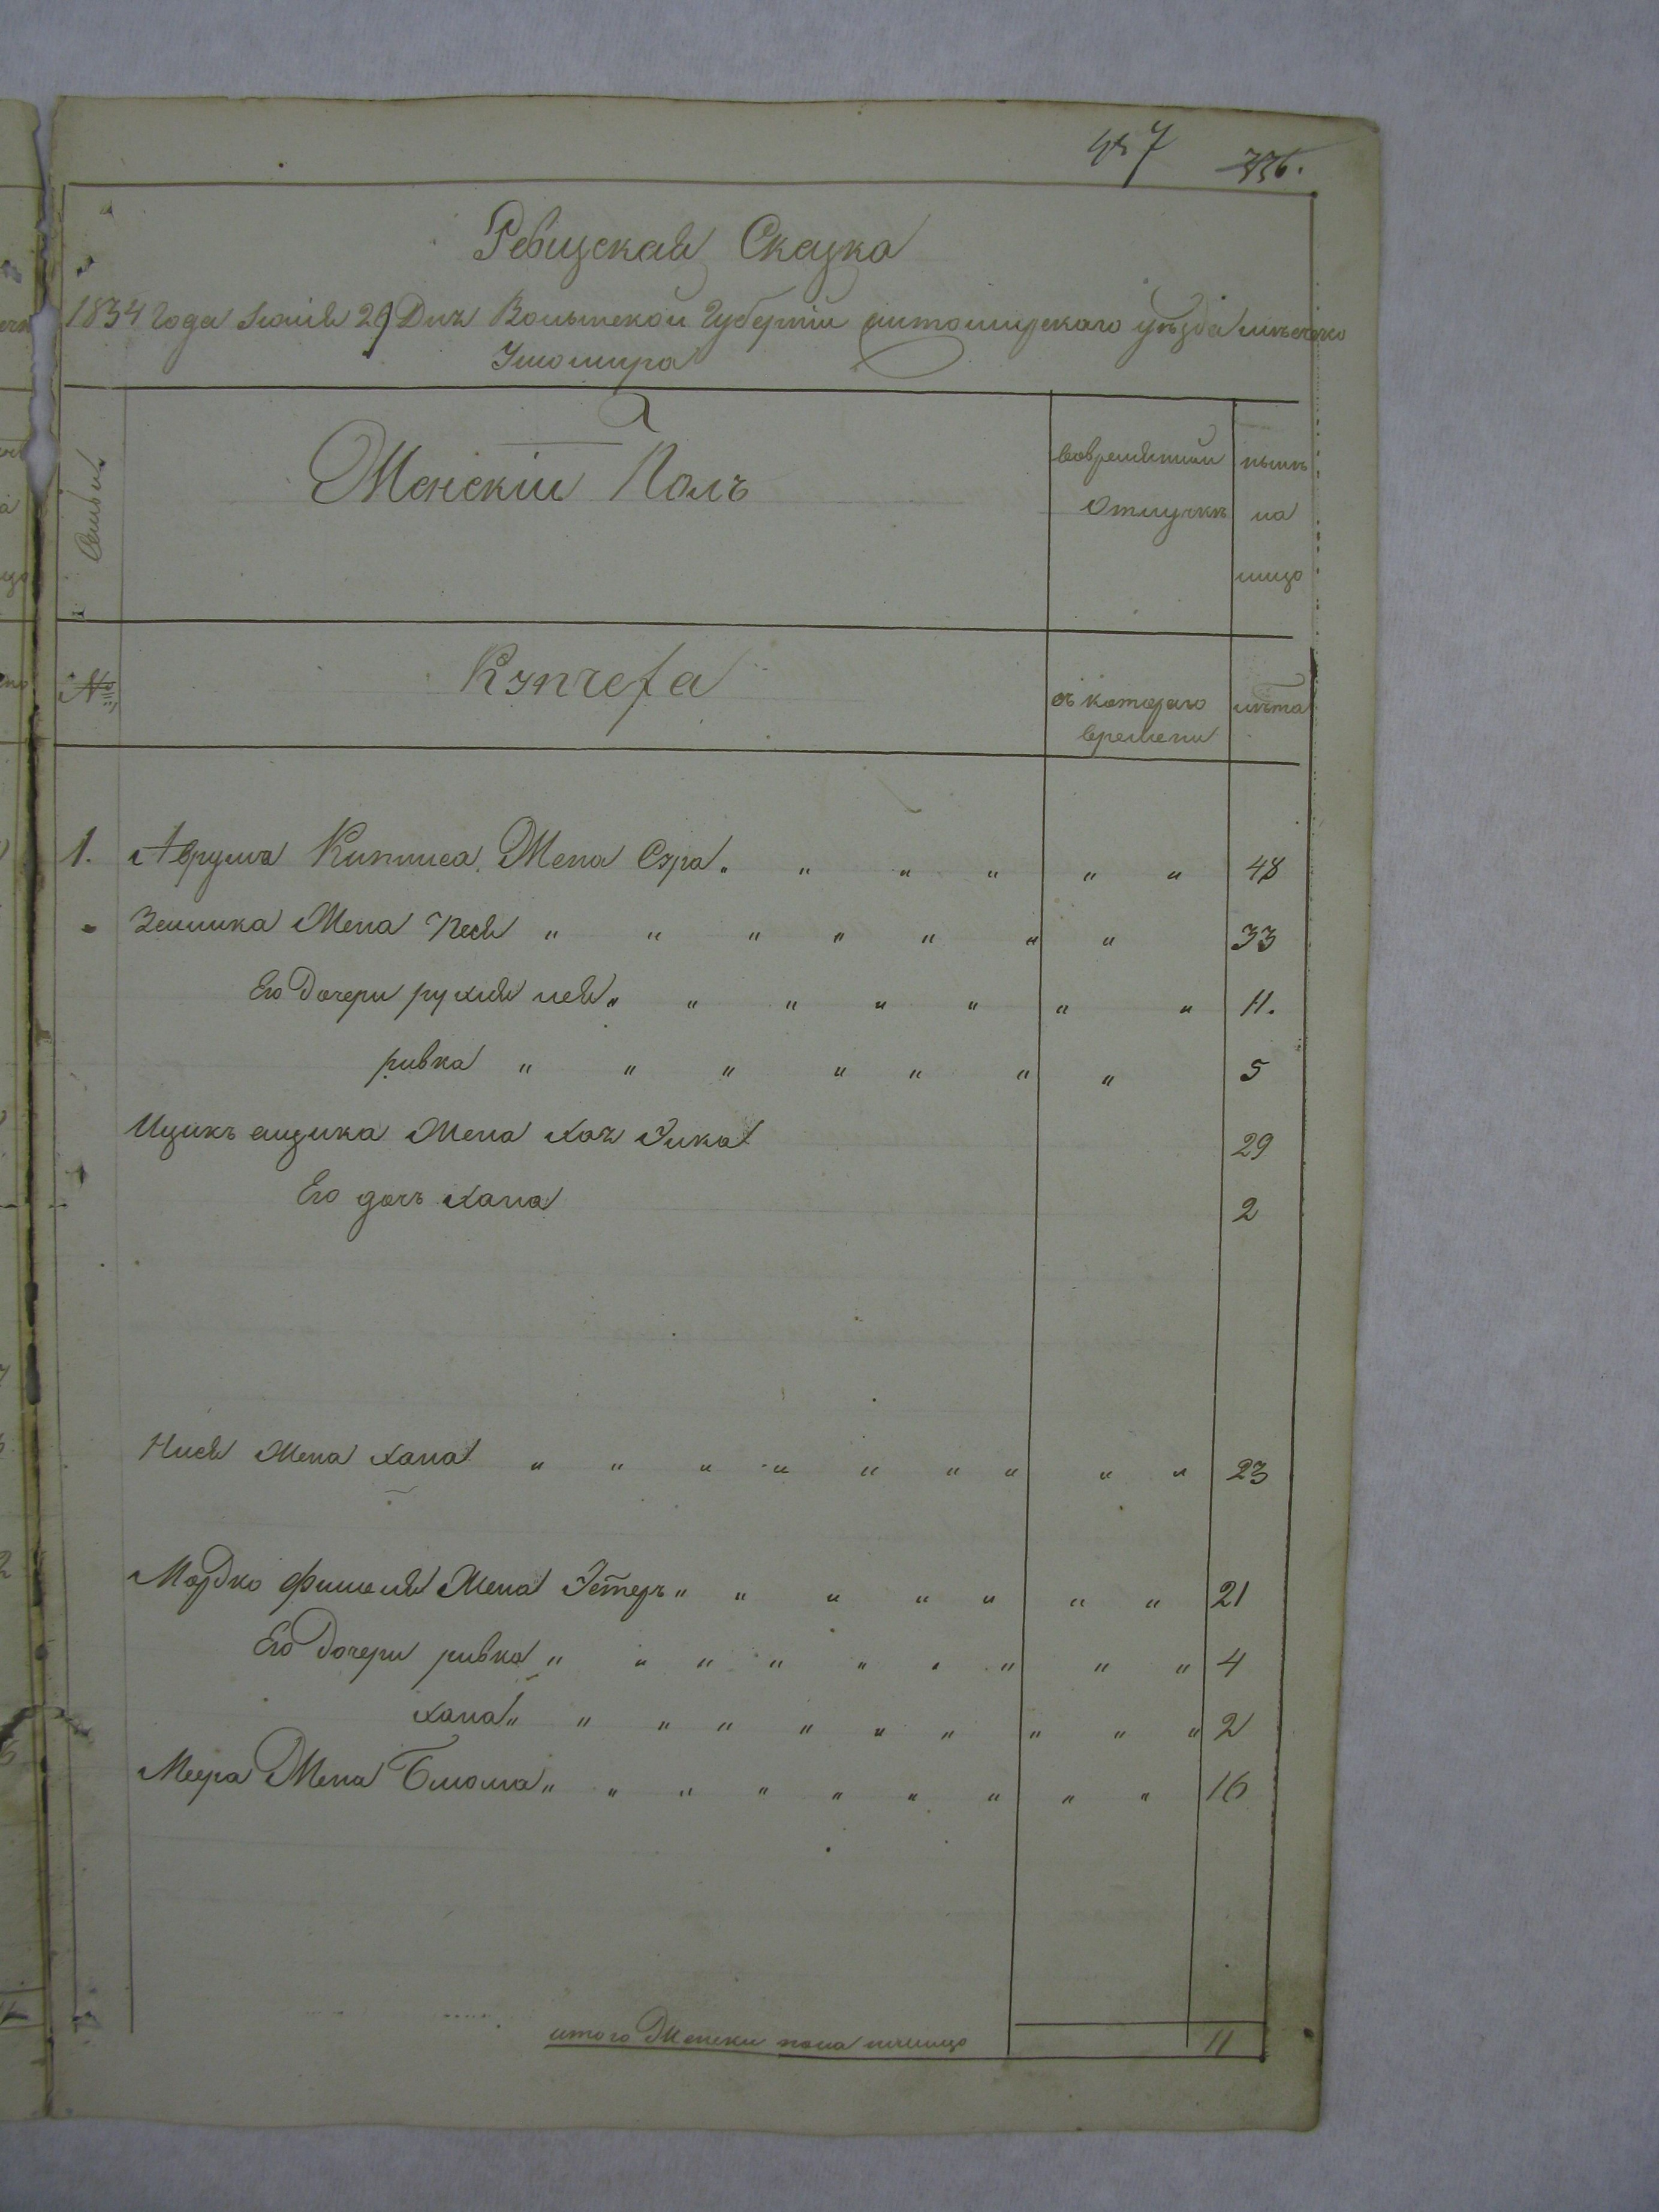 457 336.
Ревизская Сказка
1834 года Июня 29 Дня Волынской Губернии житомирского уѣзда мѣстечко
Ушомира
Семьи
Женский Полъ
вовременной нынѣ
Отлучкѣ на
лицо
№
съ которого лѣта
времени
1. Аврума Кипниса Жена Сура " " " " " " 48
Зелика Жена Песя " " " " " " " 33
Его Дочери рухля лея " " " " " " " 11.
ривка " " " " " " " 5
Ицикъ Жена хая Зика 29
Его дочь хана 2
Нися Жена хана " " " " " " " " " 23
Мордко фишеля Жена Эстеръ " " " " " " " 21
Его Дочери ривка " " " " " " " " " 4
хана " " " " " " " " " " 2
Меера Жена Блюма " " " " " " " " " 16
итого Женска пола налицо 11